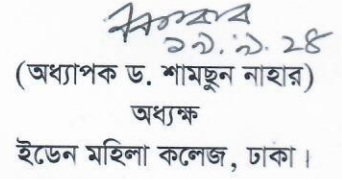 (অধ্যাপক ড. শামছুন নাহার)
অধ্যক্ষ
ইডেন মহিলা কলেজ, ঢাকা।